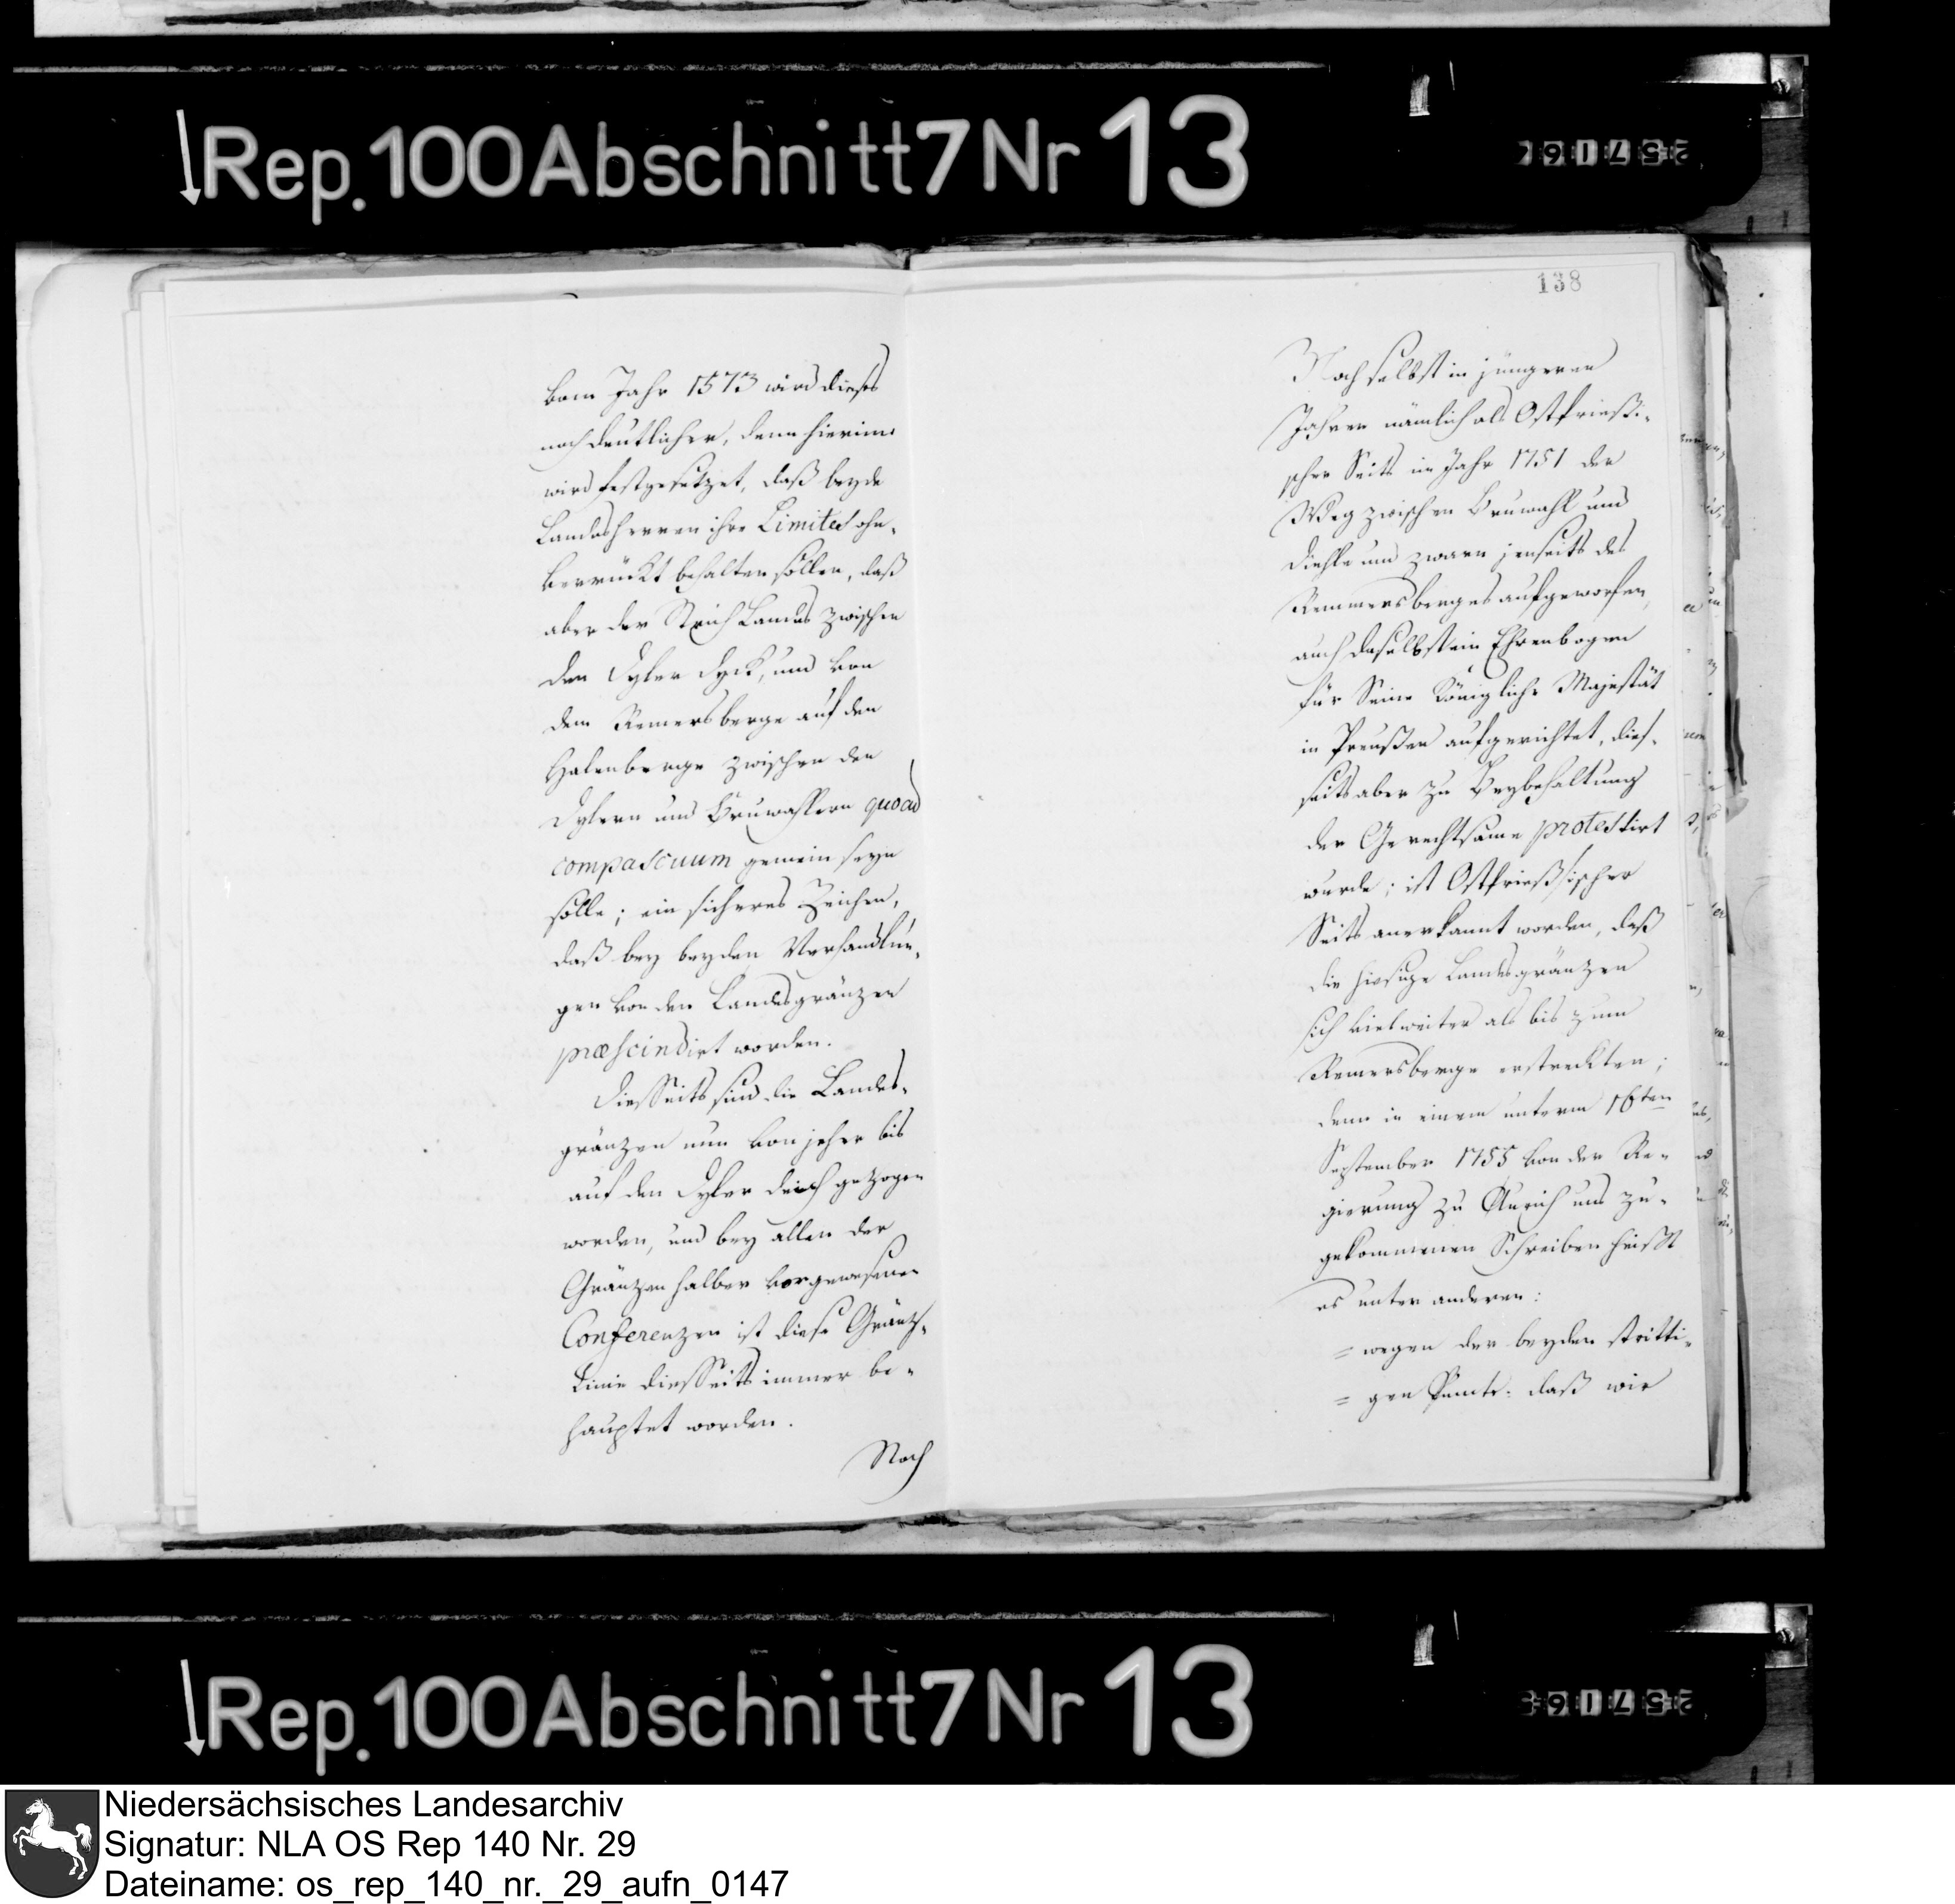 Rep.100Abschnitt7Nr 13
138
vom Jahr 1573 wird dieses
noch deutlicher, denn hierinn
wird festgesetzet, daß beyde
Landesherren ihre Limites ohn-
verrückt behalten sollen, daß
aber der Strich Landes zwischen
den Dyler Dyck, und von
dem Remersberge auf den
Halenberge zwischen den
Dylern und Bruwahlern quoad
compascuum gemein seyn
solle; ein sicheres Zeichen,
daß bey beyden Verhandlun-
gen von den Landesgränzen
præscindirt worden.
Diesseits sind die Landes-
gränzen nun von jeher bis
auf den Dyler deich gezogen
worden, und bey allen der
Gränzen halber vorgewesenen
Conferenzen ist diese Gränz-
Linie diesseits immer be-
hauptet worden.
Noch
Noch selbst in jüngeren
Jahren nämlich als Ostfrießi-
scher Seits im Jahr 1751 der
Weg zwischen Bruwahl und
Diehle und zwarn jenseits des
Remmersberges aufgeworfen,
auch daselbst ein Ehrenbogen
für Seine Königliche Majestät
in Preußen aufgerichtet, dies-
seits aber zu Beybehaltung
der Gerechtsame protestirt
wurde; ist Ostfrießischer
Seits anerkannt worden, daß
die hiesige Landesgränzen
sich viel weiter als bis zum
Remersberge erstreckten;
denn in einem unterm 16ten
September 1755 von der Re-
gierung zu Aurich uns zu-
gekommenen Schreiben heißt
es unter anderen:
= wegen der beyden stritti-
= gen Puncte: daß wir
Rep.100Abschnitt7Nr 13
Niedersächsisches Landesarchiv
Signatur: NLA OS Rep 140 Nr. 29
Dateiname: os_rep_140_nr._29_aufn_0147